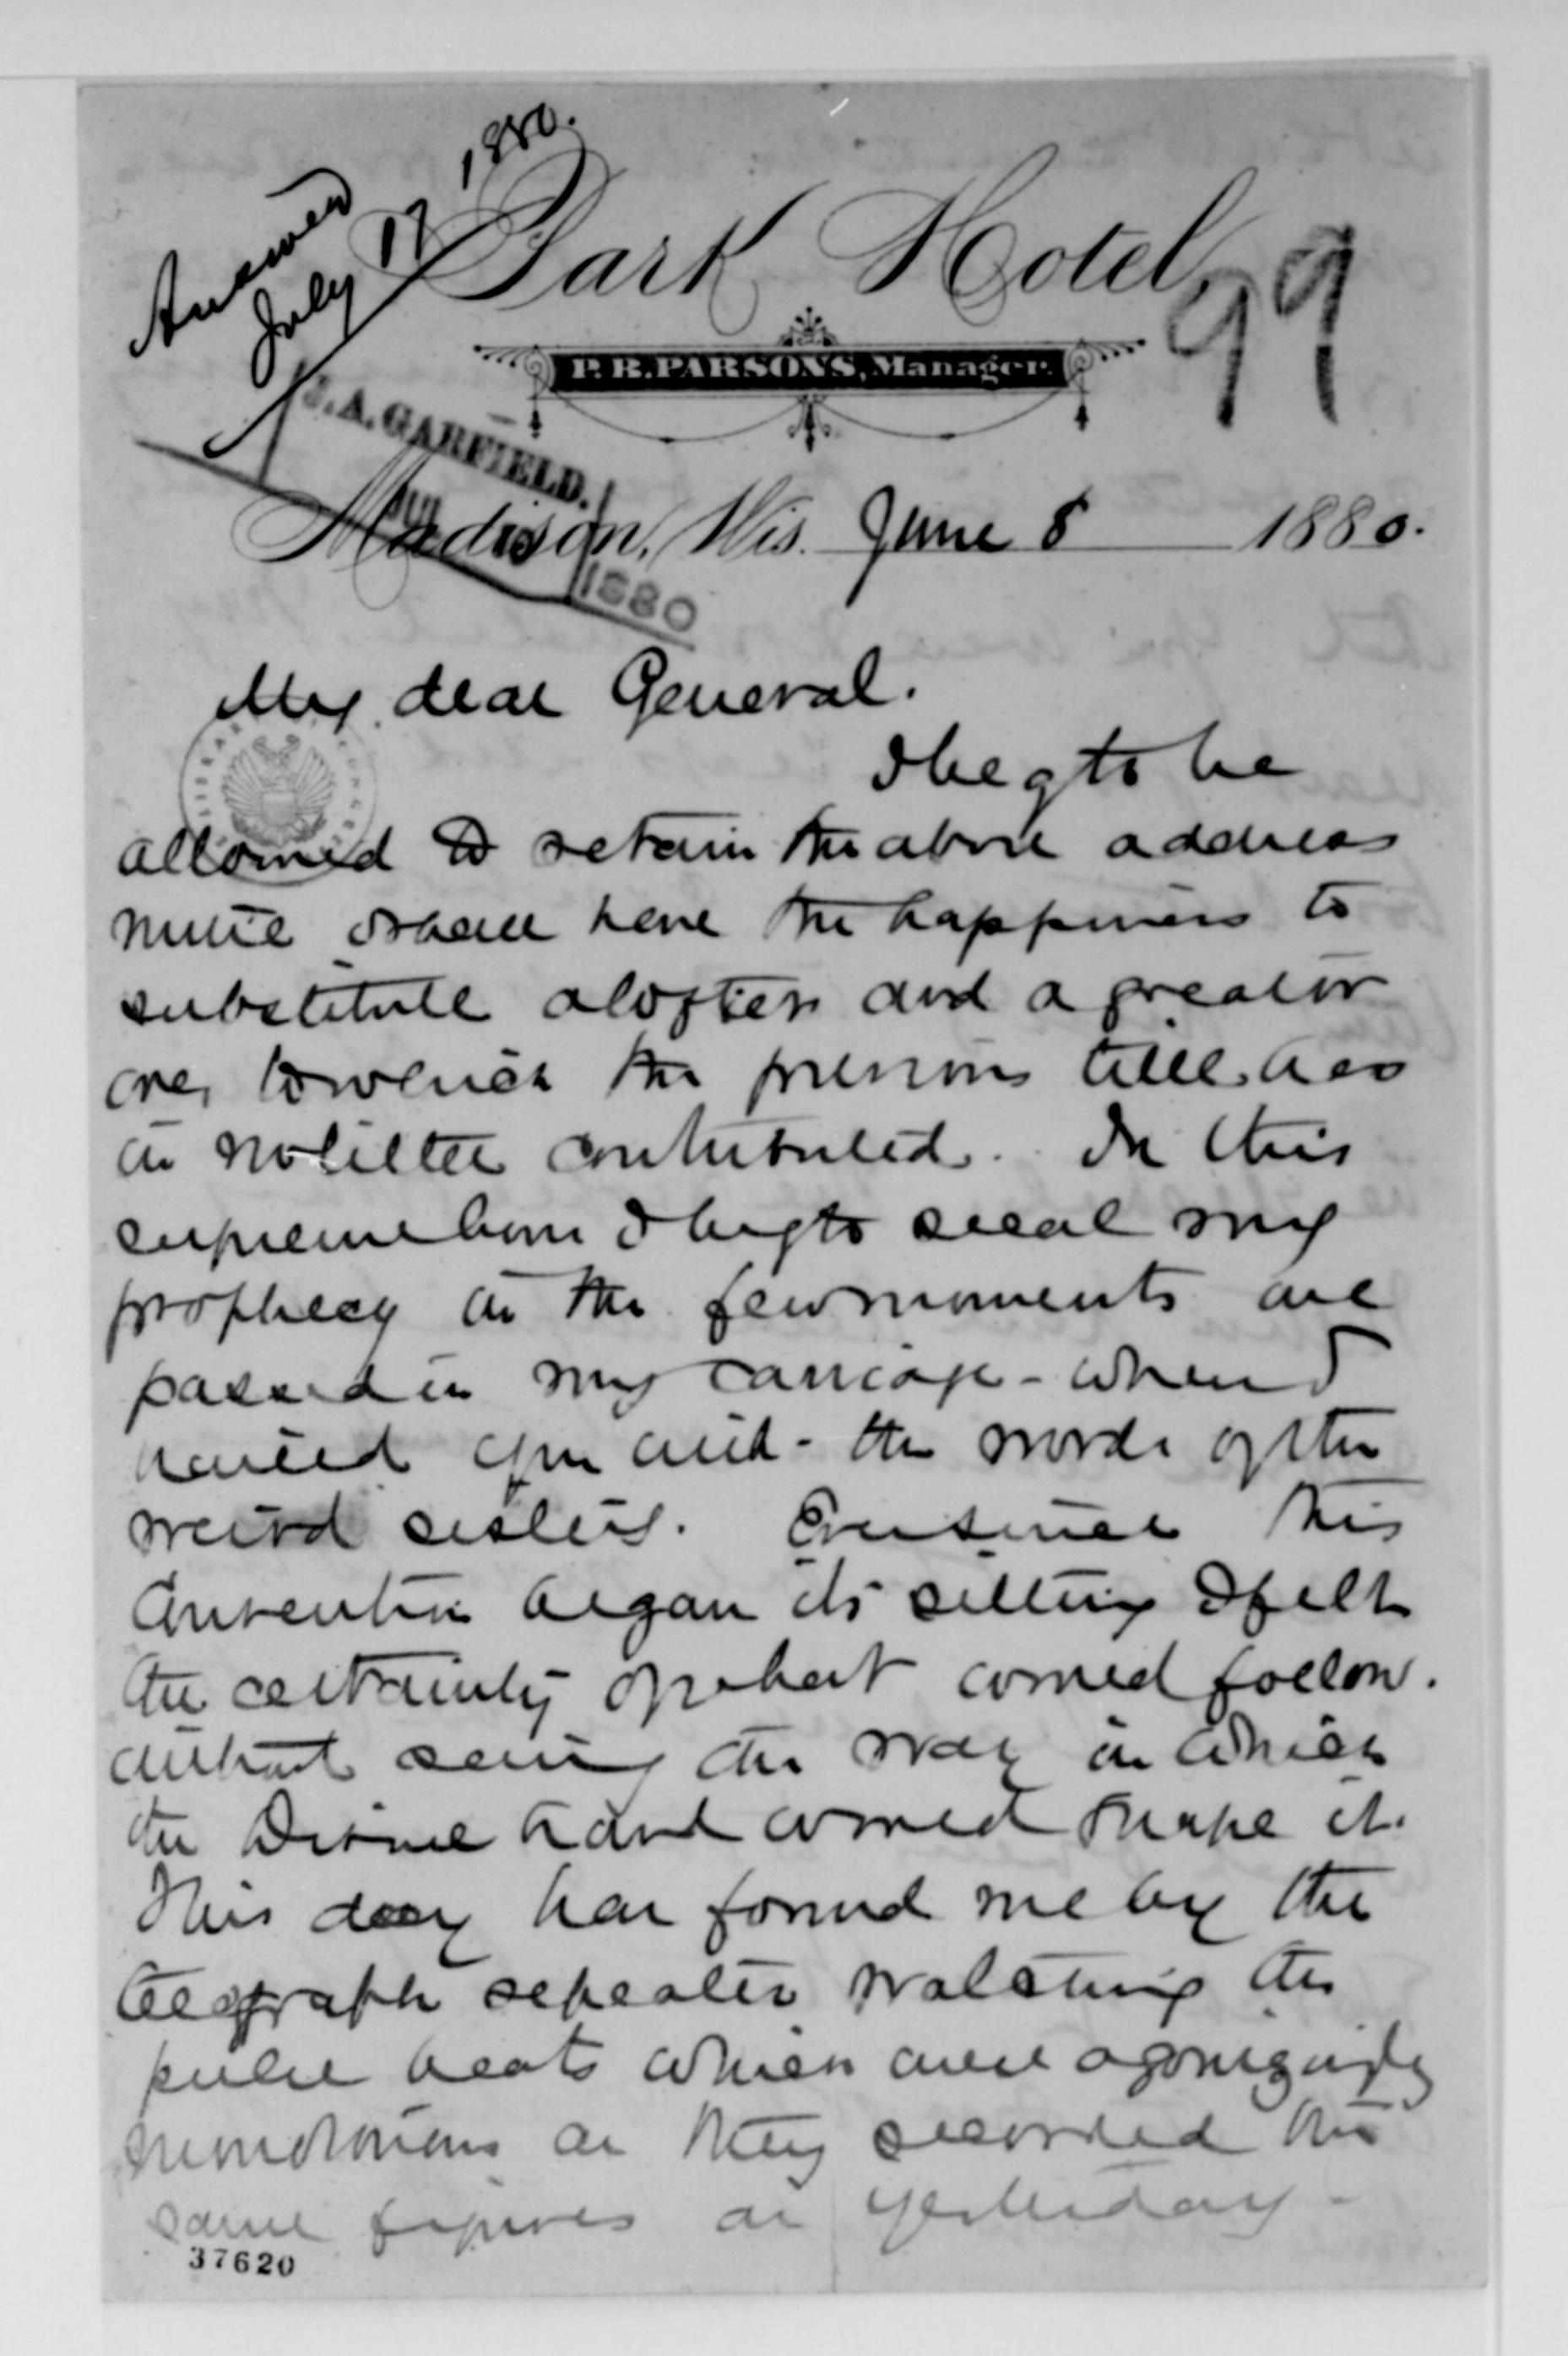 Answered
July 17 1880.
Park Hotel,
99
P. B. PARSONS, Manager.
J. A. GARFIELD.
1880
Madison, Wis. June 8 1880.
My dear General.
I beg to be
allowed to retain the above address
until I shall have the happiness to
substitute a loftier and a greater
one, to which the previous title has
in no little contributed. In this
supreme hour I beg to recal my
prophecy in the few moments we
passed in my carriage - when I
hailed you with - the words of the
weird sisters. Ever since this
Convention began its sitting I felt
the certainty of what would follow.
without seeing the way in which
the Divine hand would shape it.
This day has found me by the
telegraph repeater watching the
pulse beats which were agonizingly
monotonous as they recorded the
same figures as yesterday -
37620